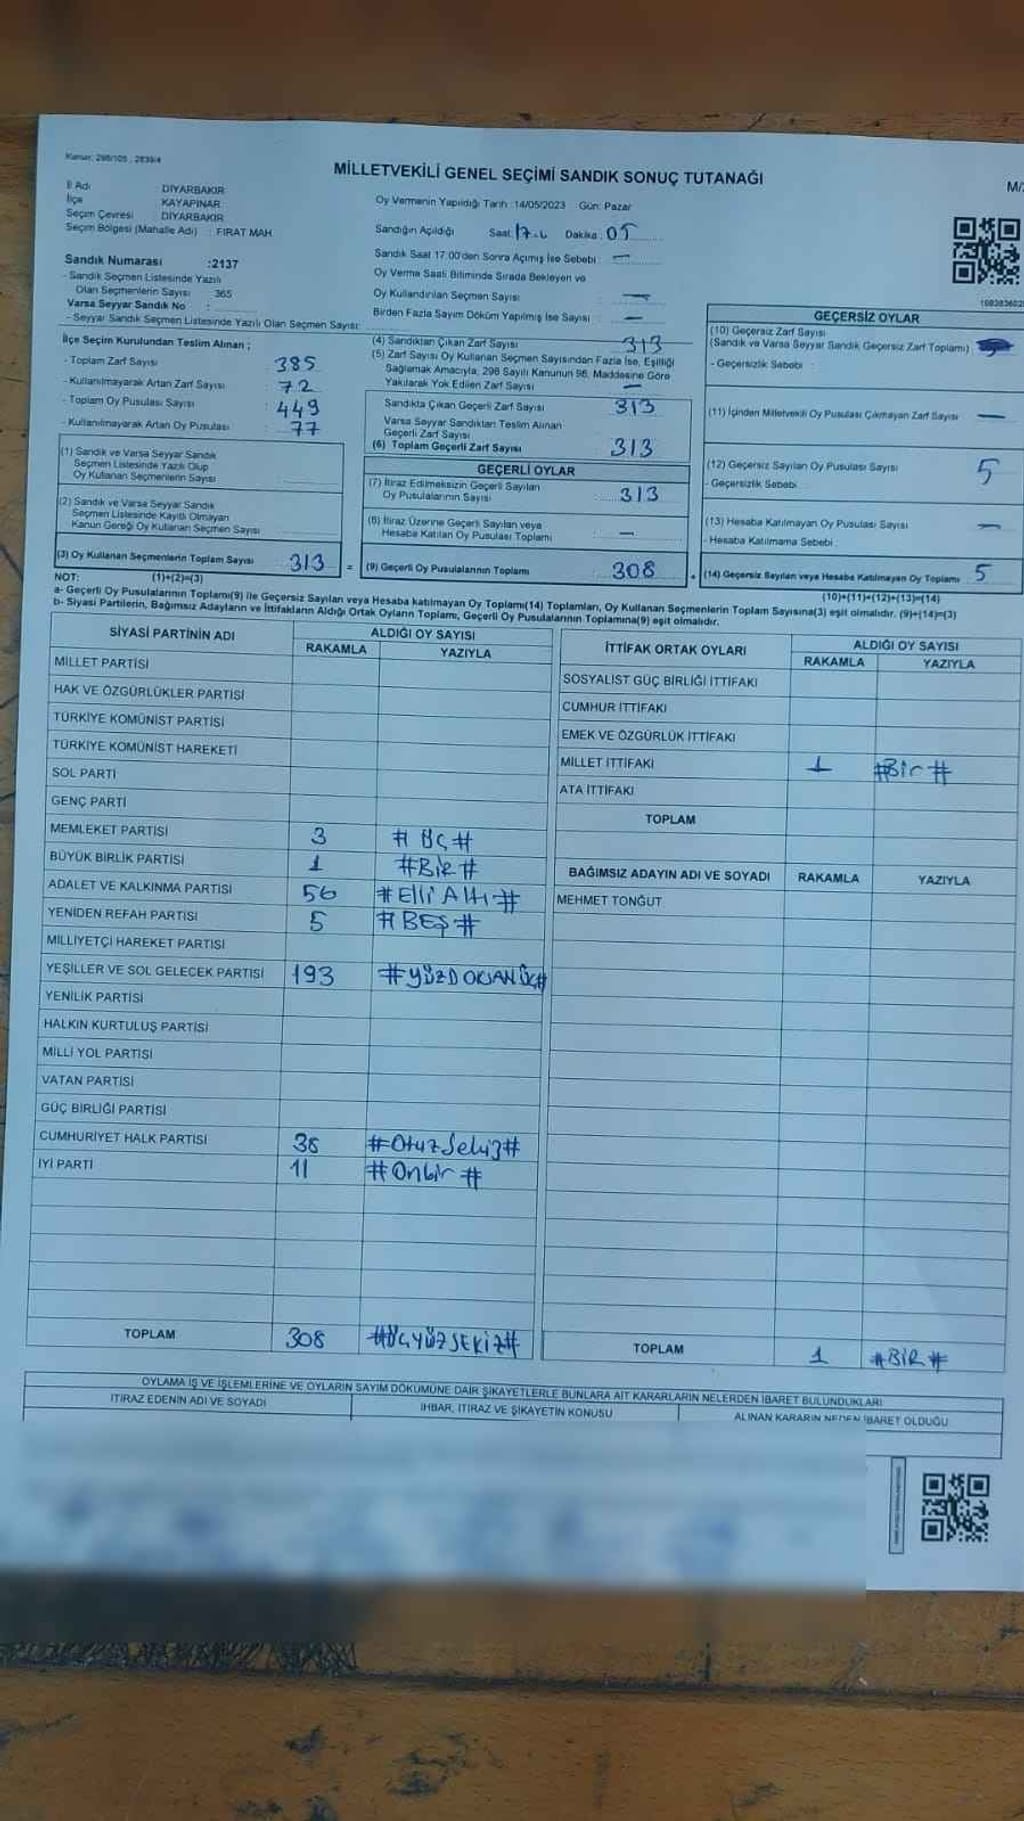 Kanun: 298/105 , 2839/4
MİLLETVEKİLİ GENEL SEÇİMİ SANDIK SONUÇ TUTANAĞI
İl Adı : DİYARBAKIR
İlçe : KAYAPINAR
Seçim Çevresi : DİYARBAKIR
Seçim Bölgesi (Mahalle Adı) : FIRAT MAH.
Sandık Numarası :2137
- Sandık Seçmen Listesinde Yazılı
Olan Seçmenlerin Sayısı 365
Varsa Seyyar Sandık No :
- Seyyar Sandık Seçmen Listesinde Yazılı Olan Seçmen Sayısı:
İlçe Seçim Kurulundan Teslim Alınan ;
- Toplam Zarf Sayısı : 385
- Kullanılmayarak Artan Zarf Sayısı : 72
- Toplam Oy Pusulası Sayısı : 449
- Kullanılmayarak Artan Oy Pusulası : 77
(1) Sandık ve Varsa Seyyar Sandık
Seçmen Listesinde Yazılı Olup
Oy Kullanan Seçmenlerin Sayısı :
(2) Sandık ve Varsa Seyyar Sandık
Seçmen Listesinde Kayıtlı Olmayan
Kanun Gereği Oy Kullanan Seçmen Sayısı :
(3) Oy Kullanan Seçmenlerin Toplam Sayısı : 313
(1)+(2)=(3)
Oy Vermenin Yapıldığı Tarih :14/05/2023 Gün: Pazar
Sandığın Açıldığı Saat: Dakika : 05
Sandık Saat 17:00'den Sonra Açımış İse Sebebi : —
Oy Verme Saati Bitiminde Sırada Bekleyen ve
Oy Kullandırılan Seçmen Sayısı : —
Birden Fazla Sayım Döküm Yapılmış İse Sayısı : —
(4) Sandıktan Çıkan Zarf Sayısı : 313
(5) Zarf Sayısı Oy Kullanan Seçmen Sayısından Fazla İse, Eşitliği
Sağlamak Amacıyla, 298 Sayılı Kanunun 98. Maddesine Göre
Yakılarak Yok Edilen Zarf Sayısı : —
Sandıkta Çıkan Geçerli Zarf Sayısı : 313
Varsa Seyyar Sandıktan Teslim Alınan
Geçerli Zarf Sayısı
(6) Toplam Geçerli Zarf Sayısı : 313
GEÇERLİ OYLAR
(7) İtiraz Edilmeksizin Geçerli Sayılan
Oy Pusulalarının Sayısı : 313
(8) İtiraz Üzerine Geçerli Sayılan veya
Hesaba Katılan Oy Pusulası Toplamı : —
= (9) Geçerli Oy Pusulalarının Toplamı : 308
GEÇERSİZ OYLAR
(10) Geçersiz Zarf Sayısı
(Sandık ve Varsa Seyyar Sandık Geçersiz Zarf Toplamı) :
- Geçersizlik Sebebi :
(11) İçinden Milletvekili Oy Pusulası Çıkmayan Zarf Sayısı : —
(12) Geçersiz Sayılan Oy Pusulası Sayısı : 5
- Geçersizlik Sebebi :
(13) Hesaba Katılmayan Oy Pusulası Sayısı : —
- Hesaba Katılmama Sebebi :
+ (14) Geçersiz Sayılan veya Hesaba Katılmayan Oy Toplamı : 5
(10)+(11)+(12)+(13)=(14)
NOT:
a- Geçerli Oy Pusulalarının Toplamı(9) ile Geçersiz Sayılan veya Hesaba katılmayan Oy Toplamı(14) Toplamları, Oy Kullanan Seçmenlerin Toplam Sayısına(3) eşit olmalıdır. (9)+(14)=(3)
b- Siyasi Partilerin, Bağımsız Adayların ve İttifakların Aldığı Ortak Oyların Toplamı, Geçerli Oy Pusulalarının Toplamına(9) eşit olmalıdır.
SİYASİ PARTİNİN ADI ALDIĞI OY SAYISI
RAKAMLA YAZIYLA
MİLLET PARTİSİ
HAK VE ÖZGÜRLÜKLER PARTİSİ
TÜRKİYE KOMÜNİST PARTİSİ
TÜRKİYE KOMÜNİST HAREKETİ
SOL PARTİ
GENÇ PARTİ
MEMLEKET PARTİSİ 3 # ÜÇ #
BÜYÜK BİRLİK PARTİSİ 1 #BİR #
ADALET VE KALKINMA PARTİSİ 56 #Elli Altı #
YENİDEN REFAH PARTİSİ 5 # BEŞ #
MİLLİYETÇİ HAREKET PARTİSİ
YEŞİLLER VE SOL GELECEK PARTİSİ 193 #YÜZDOKSANÜÇ#
YENİLİK PARTİSİ
HALKIN KURTULUŞ PARTİSİ
MİLLİ YOL PARTİSİ
VATAN PARTİSİ
GÜÇ BİRLİĞİ PARTİSİ
CUMHURİYET HALK PARTİSİ 38 #OtuzSekiz#
İYİ PARTİ 11 #Onbir #
TOPLAM 308 #ÜÇYÜZSEKİZ#
İTTİFAK ORTAK OYLARI ALDIĞI OY SAYISI
RAKAMLA YAZIYLA
SOSYALİST GÜÇ BİRLİĞİ İTTİFAKI
CUMHUR İTTİFAKI
EMEK VE ÖZGÜRLÜK İTTİFAKI
MİLLET İTTİFAKI 1 #Bir #
ATA İTTİFAKI
TOPLAM
BAĞIMSIZ ADAYIN ADI VE SOYADI RAKAMLA YAZIYLA
MEHMET TONĞUT
TOPLAM 1 #BİR #
OYLAMA İŞ VE İŞLEMLERİNE VE OYLARIN SAYIM DÖKÜMÜNE DAİR ŞİKAYETLERLE BUNLARA AİT KARARLARIN NELERDEN İBARET BULUNDUKLARI
İTİRAZ EDENİN ADI VE SOYADI İHBAR, İTİRAZ VE ŞİKAYETİN KONUSU ALINAN KARARIN NEDEN İBARET OLDUĞU